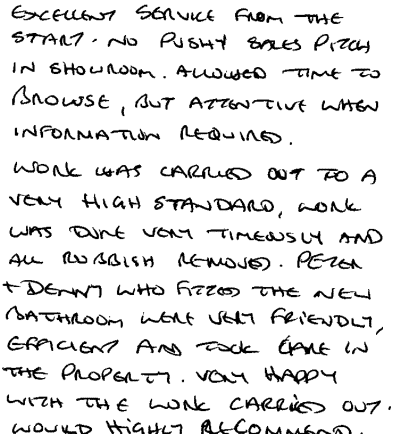 EXCELLENT SERVICE FROM THE
START. NO PUSHY SALES PITCH
IN SHOWROOM. ALLOWED TIME TO
BROWSE, BUT ATTENTIVE WHEN
INFORMATION REQUIRED.
WORK WAS CARRIED OUT TO A
VERY HIGH STANDARD, WORK
WAS DONE VERY TIMEOUSLY AND
ALL RUBBISH REMOVED. PETER
+ DENNY WHO FITTED THE NEW
BATHROOM WERE VERY FRIENDLY,
EFFICIENT AND TOOK CARE IN
THE PROPERTY. VERY HAPPY
WITH THE WORK CARRIED OUT.
WOULD HIGHLY RECOMMEND.